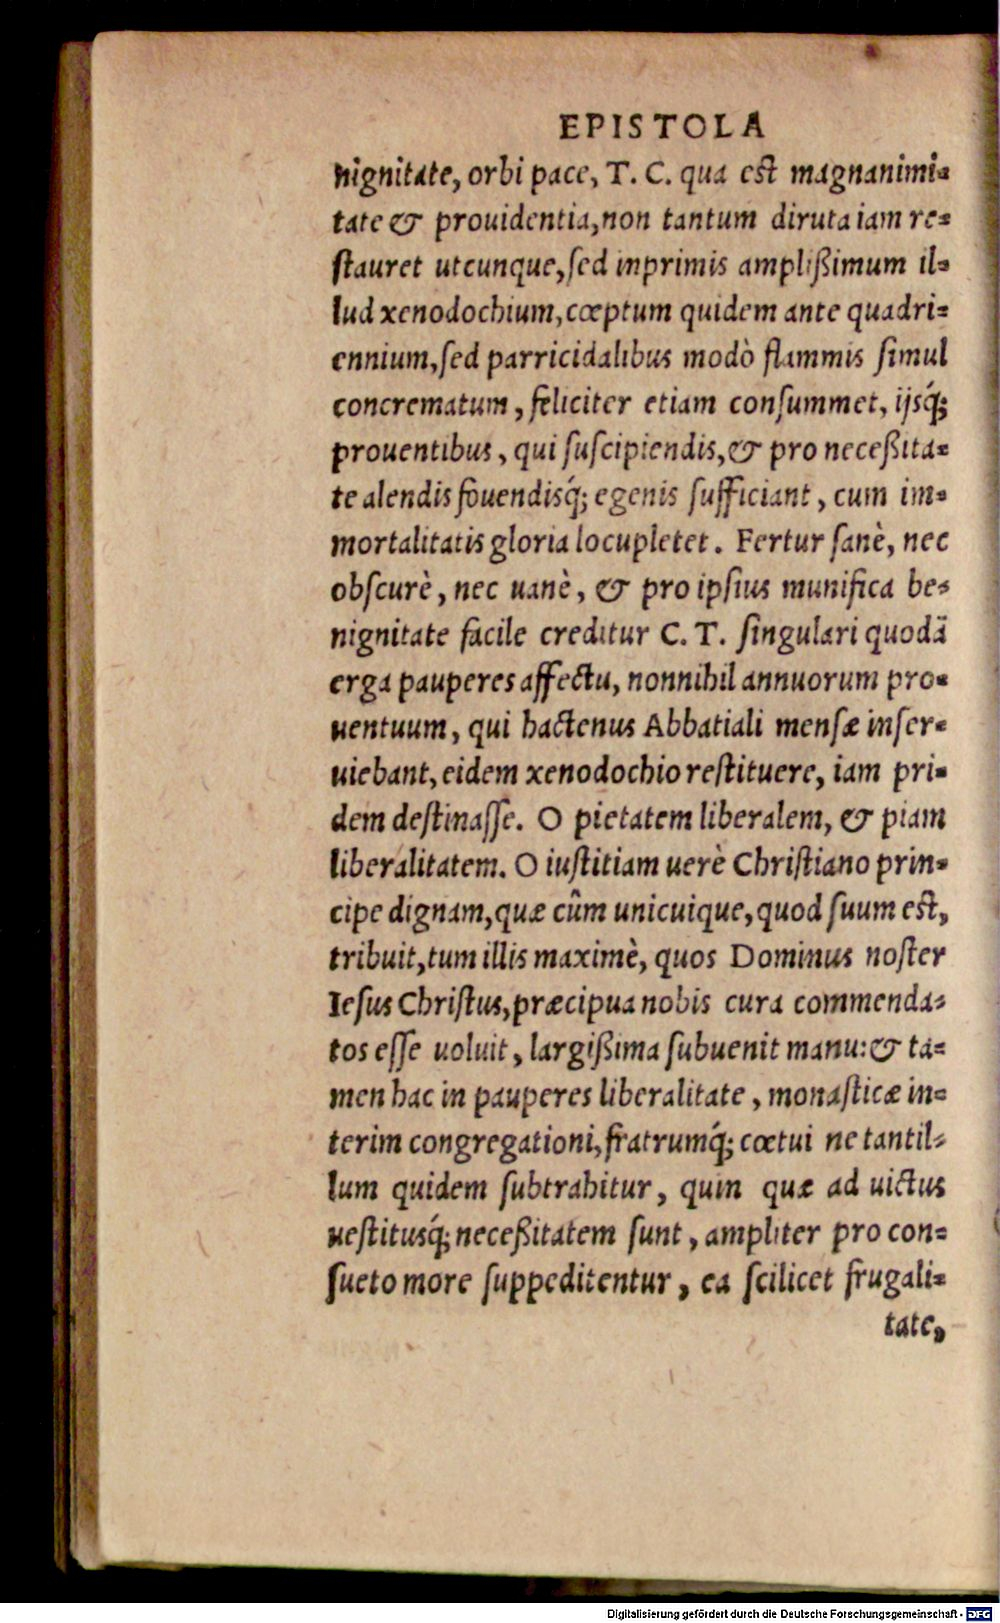 EPISTOLA
nignitate, orbi pace, T. C. qua est magnanimi=
tate & prouidentia, non tantum diruta iam re=
stauret utcunque, sed inprimis amplißimum il=
lud xenodochium, cœptum quidem ante quadri=
ennium, sed parricidalibus modò flammis simul
concrematum, feliciter etiam consummet, ijsq́;
prouentibus, qui suscipiendis, & pro neceßita=
te alendis fouendisq́; egenis sufficiant, cum im=
mortalitatis gloria locupletet. Fertur sanè, nec
obscurè, nec uanè, & pro ipsius munifica be=
nignitate facile creditur C. T. singulari quodã
erga pauperes affectu, nonnihil annuorum pro=
uentuum, qui hactenus Abbatiali mensæ inser=
uiebant, eidem xenodochio restituere, iam pri=
dem destinasse. O pietatem liberalem, & piam
liberalitatem. O iustitiam uerè Christiano prin=
cipe dignam, quæ cûm unicuique, quod suum est,
tribuit, tum illis maximè, quos Dominus noster
Iesus Christus, præcipua nobis cura commenda=
tos esse uoluit, largißima subuenit manu: & ta=
men hac in pauperes liberalitate, monasticæ in=
terim congregationi, fratrumq́; cœtui ne tantil=
lum quidem subtrahitur, quin quæ ad uictus
uestitusq́; neceßitatem sunt, ampliter pro con=
sueto more suppeditentur, ea scilicet frugali=
tate,
Digitalisierung gefördert durch die Deutsche Forschungsgemeinschaft - DFG